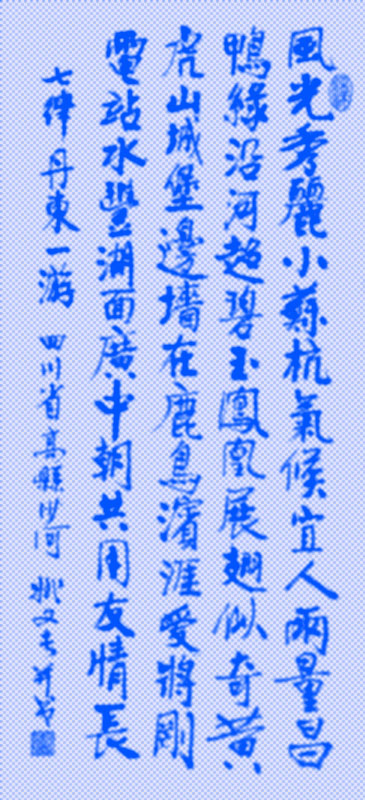 風光秀麗小蘇杭氣候宜人兩量昌
鴨綠沿河超碧玉鳳凰展翅似奇黃
虎山城堡邊墻在鹿鳥濱涯愛將剛
電站水豐湖面廣中朝共用友情長
七律 丹東一游 四川省高縣沙河 姚又